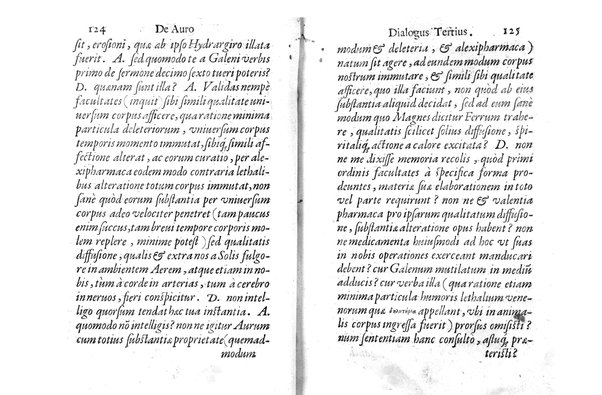 124 De Auro
sit, erosioni, quæ ab ipso Hydrargiro illata
fuerit. A. sed quomodo te a Galeni verbis
primo de sermone decimo sexto tueri poteris?
D. quænam sunt illa? A. Validas nempè
facultates (inquit sibi simili qualitate uni-
uersum corpus afficere, qua ratione minima
particula deleteriorum, vniuersum corpus
temporis momento immutat, sibiq́; simili af-
fectione alterat, ac eorum curatio, per ale-
xipharmaca eodem modo contraria lethali-
bus alteratione totum corpus immutat, non
sanè quòd eorum substantia per vniuersum
corpus adeo velocitèr penetret (tam paucus
enim succus, tam breui tempore corporis mo-
lem replere, minimè potest) sed qualitatis
diffusione, qualis & extra nos a Solis fulgo-
re in ambientem Aerem, atque etiam in no-
bis, tum à corde in arterias, tum à cerebro
in neruos, fieri conspicitur. D. non intel-
ligo quorsum tendat hæc tua instantia. A.
quomodo nõ intelligis? nonne igitur Aurum
cum totius substãtiæ proprietate (quemad-
modum
Dialogus Tertius. 125
modum & deleteria, & alexipharmaca)
natum sit agere, ad eundem modum corpus
nostrum immutare, & simili sibi qualitate
afficere, quo illa faciunt, non quòd ab eius
substantia aliquid decidat, sed ad eum sanè
modum quo Magnes dicitur Ferrum trahe-
re, qualitatis scilicet solius diffusione, spi-
ritaliq́; actione a calore excitata? D. non
ne me dixisse memoria recolis, quòd primi
ordinis facultates à specifica forma pro-
deuntes, materiæ suæ elaborationem in toto
vel parte requirunt? non ne & valentia
pharmaca pro ipsarum qualitatum diffusio-
ne, substantiæ alteratione opus habent? non
ne medicamenta huiusmodi ad hoc vt suas
in nobis operationes exerceant manducari
debent? cur Galenum mutilatum in mediũ
adducis? cur verba illa (qua ratione etiam
minima particula humoris lethalium vene-
norum quæ appellant, vbi in anima-
lis corpus ingressa fuerit) prorsus omisisti?
num sententiam hanc consulto, astuq́; præ-
terisli?